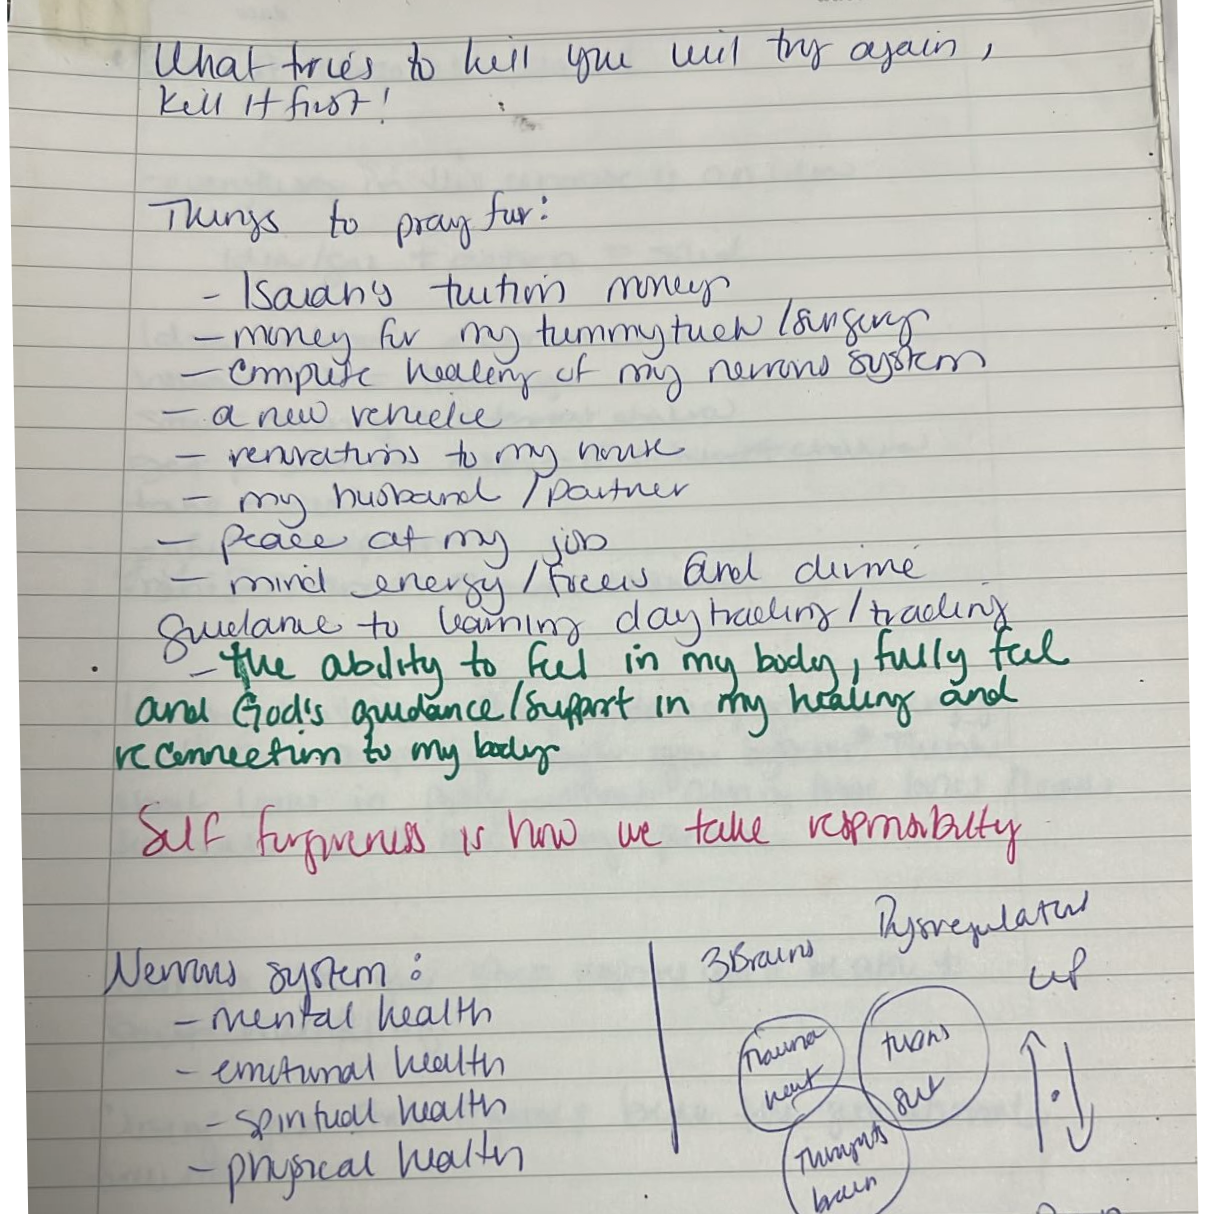 What tries to kill you will try again,
Kill it first!
Things to pray for:
- Isaiah's tuition money
- money for my tummytuck/surgery
- complete healing of my nervous system
- a new vehicle
- renovations to my house
- my husband/partner
- peace at my job
- mind energy/focus and divine
guidance to learning daytrading/trading
- the ability to feel in my body, fully feel
and God's guidance/support in my healing and
reconnection to my body
Self forgiveness is how we take responsibility
Nervous system:
- mental health
- emotional health
- spiritual health
- physical health
3 Brains
Dysregulated
UP
Trauma
heart
gut
Thoughts
brain